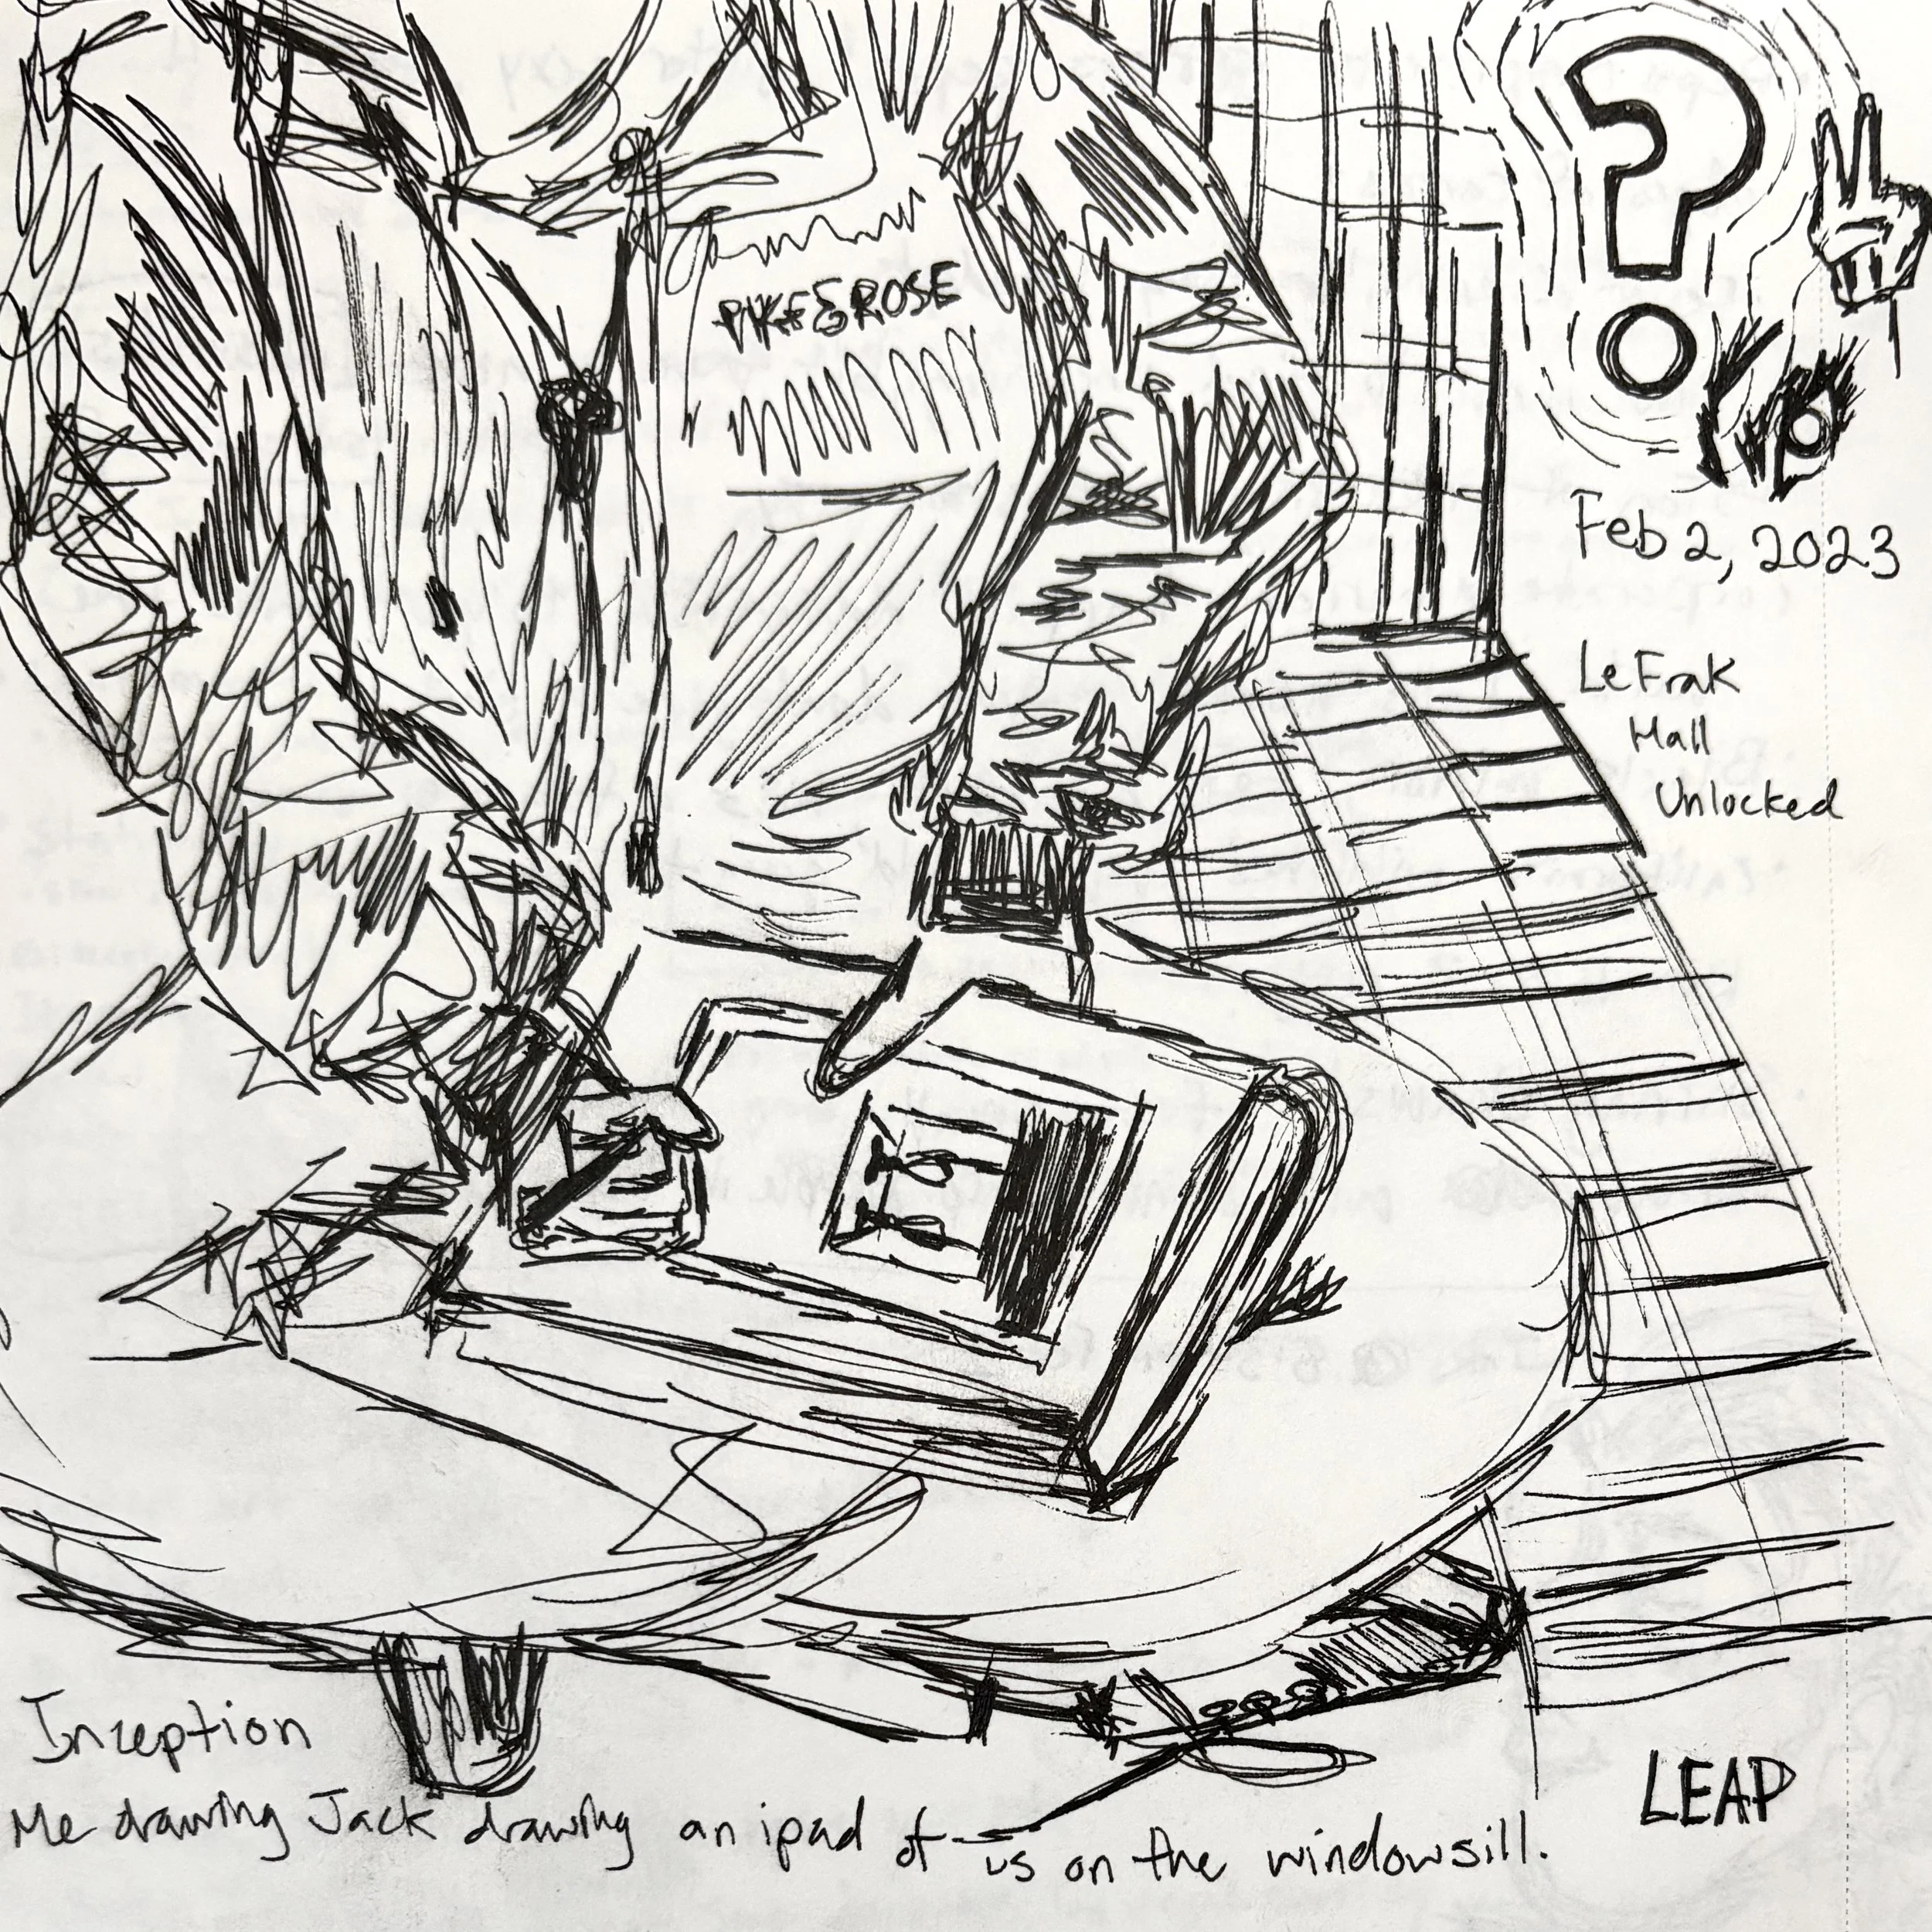 PIKE&ROSE
?
Feb 2, 2023
LeFrak
Hall
Unlocked
Inception
Me drawing Jack drawing an ipad of us on the windowsill.
LEAP